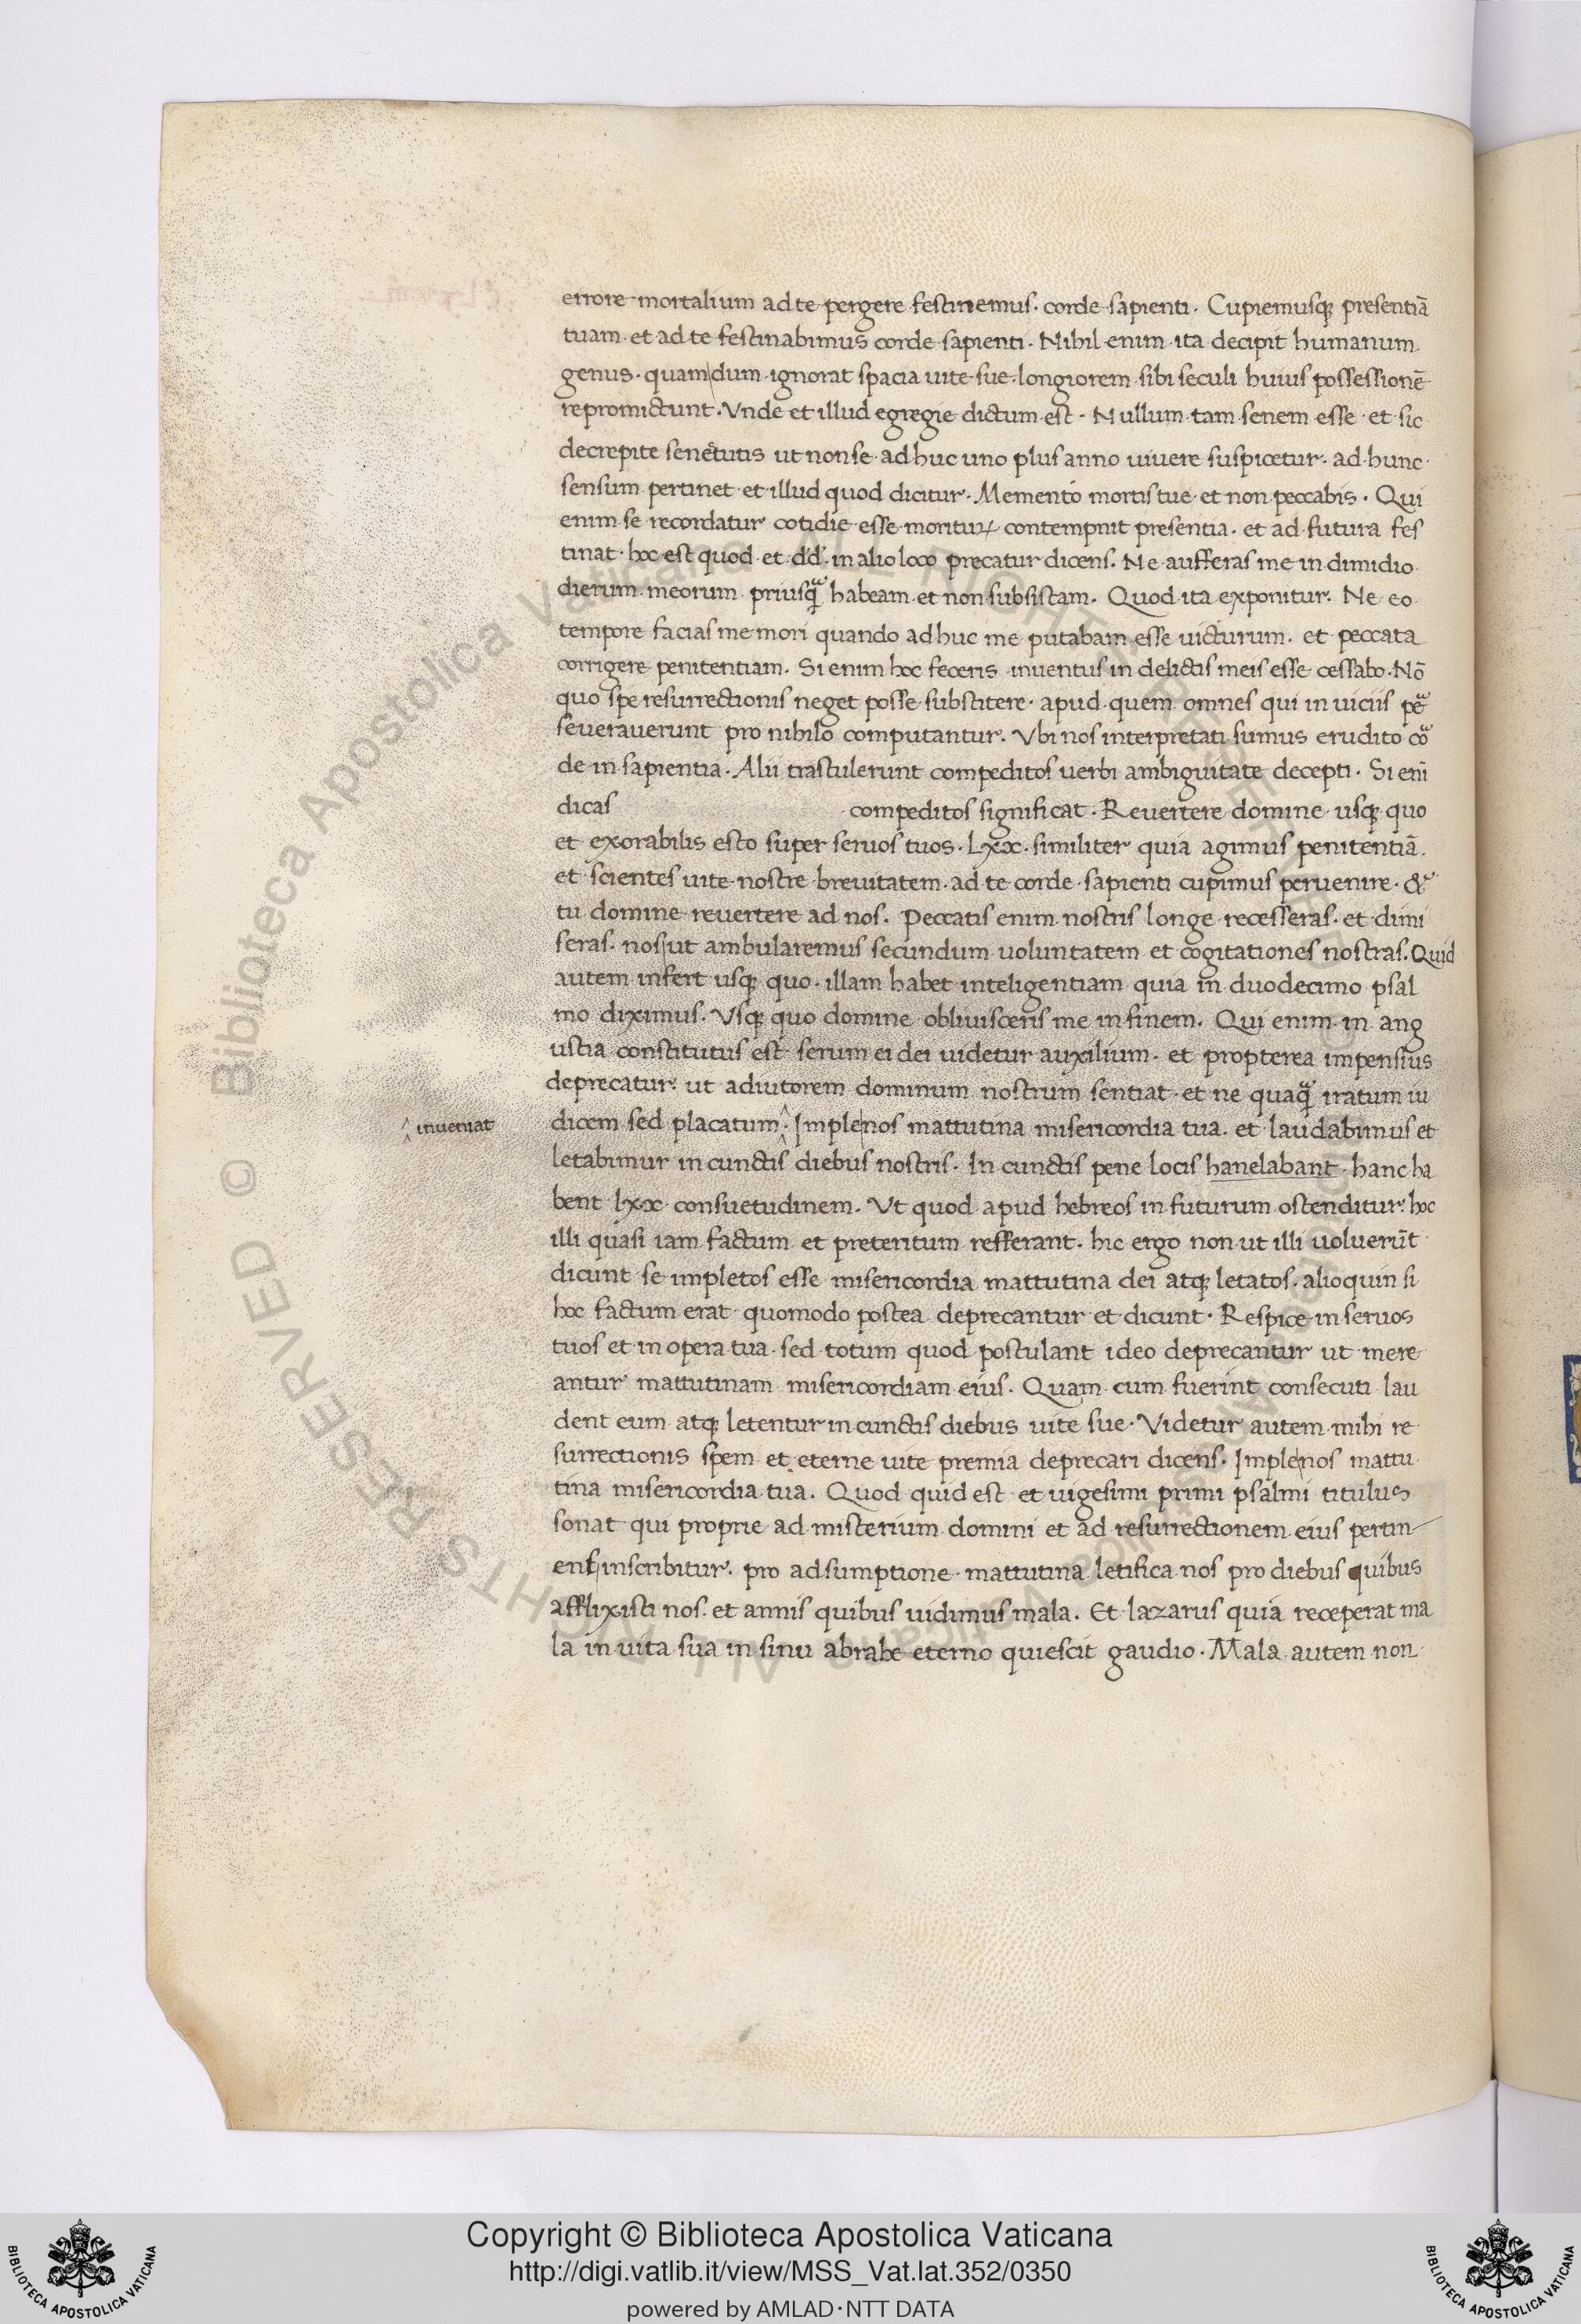 errore mortalium ad te pergere festinemus. corde sapienti. Cupiemusq presentiā
tuam et ad te festinabimus corde sapienti. Nihil enim ita decipit humanum
genus. quam dum ignorat spacia uite sue longiorem sibi seculi huius possessionē
repromictunt. Vnde et illud egregie dictum est. Nullum tam senem esse et sic
decrepite senectutis ut non se adhuc uno plus anno uiuere suspicetur. ad hunc
sensum pertinet et illud quod dicitur. Memento mortis tue et non peccabis. Qui
enim se recordatur cotidie esse moritur contempnit presentia. et ad futura fes
tinat. hoc est quod et dd. in alio loco precatur dicens. Ne aufferas me in dimidio
dierum meorum priusq habeam et non subsistam. Quod ita exponitur. Ne eo
tempore facias me mori quando adhuc me putabam esse uicturum. et peccata
corrigere penitentiam. Si enim hoc feceris inuentus in delictis meis esse cessabo. Nō
quo spe resurrectionis neget posse substitere. apud quem omnes qui in uiciis pe
seuerauerunt pro nihilo computantur. Vbi nos interpretati sumus erudito co
de in sapientia. Alii trastulerunt compeditos uerbi ambiguitate decepti. Si eni
dicas compeditos significat. Reuertere domine usq quo
et exorabilis esto super seruos tuos. Lxx. similiter quia agimus penitentiā.
et scientes uite nostre breuitatem. ad te corde sapienti cupimus peruenire. &
tu domine reuertere ad nos. Peccatis enim nostris longe recesseras. et dimi
seras. nos ut ambularemus secundum uoluntatem et cogitationes nostras. Quid
autem infert usq quo. illam habet inteligentiam quia in duodecimo psal
mo diximus. Vsq quo domine obliuisceris me in finem. Qui enim in ang
ustia constitutus est serum ei dei uidetur auxilium. et propterea impensius
deprecatur. ut adiutorem dominum nostrum sentiat. et ne quaq iratum iu
inueniat
dicem sed placatum. Imple nos mattutina misericordia tua. et laudabimus et
letabimur in cunctis diebus nostris. In cunctis pene locis hanelabant. hanc ha
bent lxx consuetudinem. Vt quod apud hebreos in futurum ostenditur. hoc
illi quasi iam factum et preteritum refferant. hic ergo non ut illi uoluerūt
dicunt se impletos esse misericordia mattutina dei atq letatos. alioquin si
hoc factum erat quomodo postea deprecantur et dicunt. Respice in seruos
tuos et in opera tua. sed totum quod postulant ideo deprecantur ut mere
antur mattutinam misericordiam eius. Quam cum fuerint consecuti lau
dent eum atq letentur in cunctis diebus uite sue. Videtur autem mihi re
surrectionis spem et eterne uite premia deprecari dicens. Imple nos mattu
tina misericordia tua. Quod quid est et uigesimi primi psalmi titulus
sonat qui proprie ad misterium domini et ad resurrectionem eius pertin
ens inscribitur. pro adsumptione mattutina letifica nos pro diebus quibus
afflixisti nos. et annis quibus uidimus mala. Et lazarus quia receperat ma
la in uita sua in sinu abrahe eterno quiescit gaudio. Mala autem non
© Biblioteca Apostolica Vaticana ALL RIGHTS RESERVED
BIBLIOTECA APOSTOLICA VATICANA
Copyright © Biblioteca Apostolica Vaticana
http://digi.vatlib.it/view/MSS_Vat.lat.352/0350
powered by AMLAD·NTT DATA
BIBLIOTECA APOSTOLICA VATICANA